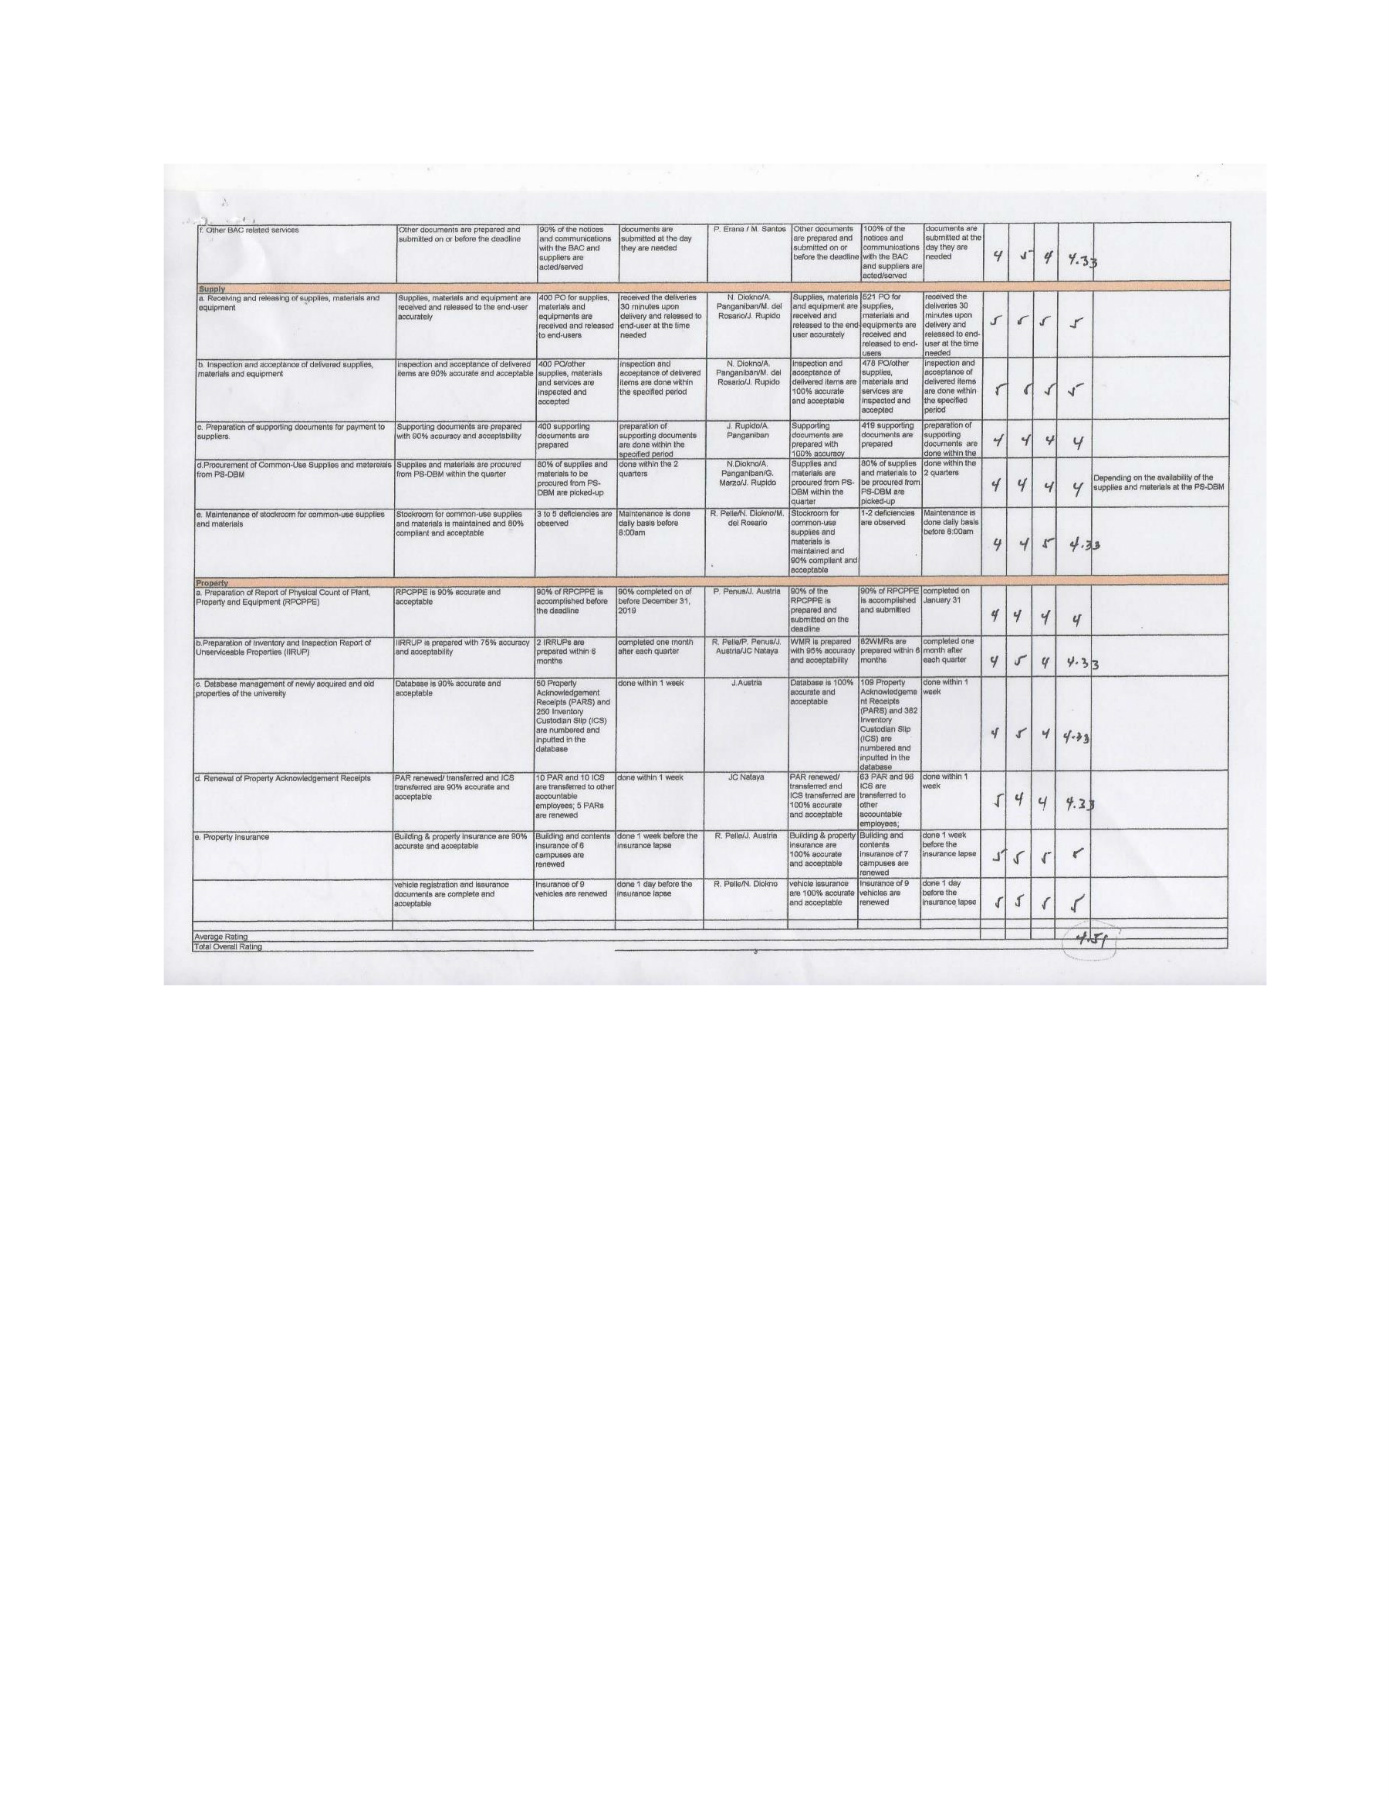 f. Other BAC related services
Other documents are prepared and
submitted on or before the deadline
90% of the notices
and communications
with the BAC and
suppliers are
acted/served
documents are
submitted at the day
they are needed
P. Erana / M. Santos
Other documents
are prepared and
submitted on or
before the deadline
100% of the
notices and
communications
with the BAC
and suppliers are
acted/served
documents are
submitted at the
day they are
needed
4 5 4 4.33
Supply
a. Receiving and releasing of supplies, materials and
equipment
Supplies, materials and equipment are
received and released to the end-user
accurately
400 PO for supplies,
materials and
equipments are
received and released
to end-users
received the deliveries
30 minutes upon
delivery and released to
end-user at the time
needed
N. Diokno/A.
Panganiban/M. del
Rosario/J. Rupido
Supplies, materials
and equipment are
received and
released to the end-
user accurately
621 PO for
supplies,
materials and
equipments are
received and
released to end-
users
received the
deliveries 30
minutes upon
delivery and
released to end-
user at the time
needed
5 5 5 5
b. Inspection and acceptance of delivered supplies,
materials and equipment
Inspection and acceptance of delivered
items are 90% accurate and acceptable
400 PO/other
supplies, materials
and services are
inspected and
accepted
inspection and
acceptance of delivered
items are done within
the specified period
N. Diokno/A.
Panganiban/M. del
Rosario/J. Rupido
Inspection and
acceptance of
delivered items are
100% accurate
and acceptable
478 PO/other
supplies,
materials and
services are
inspected and
accepted
inspection and
acceptance of
delivered items
are done within
the specified
period
5 5 5 5
c. Preparation of supporting documents for payment to
suppliers.
Supporting documents are prepared
with 90% accuracy and acceptability
400 supporting
documents are
prepared
preparation of
supporting documents
are done within the
specified period
J. Rupido/A.
Panganiban
Supporting
documents are
prepared with
100% accuracy
419 supporting
documents are
prepared
preparation of
supporting
documents are
done within the
4 4 4 4
d.Procurement of Common-Use Supplies and matereials
from PS-DBM
Supplies and materials are procured
from PS-DBM within the quarter
80% of supplies and
materials to be
procured from PS-
DBM are picked-up
done within the 2
quarters
N.Diokno/A.
Panganiban/G.
Marzo/J. Rupido
Supplies and
materials are
procured from PS-
DBM within the
quarter
80% of supplies
and materials to
be procured from
PS-DBM are
picked-up
done within the
2 quarters
4 4 4 4
Depending on the availability of the
supplies and materials at the PS-DBM
e. Maintenance of stockroom for common-use supplies
and materials
Stockroom for common-use supplies
and materials is maintained and 80%
compliant and acceptable
3 to 5 deficiencies are
observed
Maintenance is done
daily basis before
8:00am
R. Pelle/N. Diokno/M.
del Rosario
Stockroom for
common-use
supplies and
materials is
maintained and
90% compliant and
acceptable
1-2 deficiencies
are observed
Maintenance is
done daily basis
before 8:00am
4 4 5 4.33
Property
a. Preparation of Report of Physical Count of Plant,
Property and Equipment (RPCPPE)
RPCPPE is 90% accurate and
acceptable
90% of RPCPPE is
accomplished before
the deadline
90% completed on of
before December 31,
2019
P. Penus/J. Austria
90% of the
RPCPPE is
prepared and
submitted on the
deadline
90% of RPCPPE
is accomplished
and submitted
completed on
January 31
4 4 4 4
b.Preparation of Inventory and Inspection Report of
Unserviceable Properties (IIRUP)
IIRRUP is prepared with 75% accuracy
and acceptability
2 IRRUPs are
prepared within 6
months
completed one month
after each quarter
R. Pelle/P. Penus/J.
Austria/JC Nataya
WMR is prepared
with 95% accuracy
and acceptability
62WMRs are
prepared within 6
months
completed one
month after
each quarter
4 5 4 4.33
c. Database management of newly acquired and old
properties of the university
Database is 90% accurate and
acceptable
50 Property
Acknowledgement
Receipts (PARS) and
250 Inventory
Custodian Slip (ICS)
are numbered and
inputted in the
database
done within 1 week
J.Austria
Database is 100%
accurate and
acceptable
109 Property
Acknowledgeme
nt Receipts
(PARS) and 382
Inventory
Custodian Slip
(ICS) are
numbered and
inputted in the
database
done within 1
week
4 5 4 4.33
d. Renewal of Property Acknowledgement Receipts
PAR renewed/ transferred and ICS
transferred are 90% accurate and
acceptable
10 PAR and 10 ICS
are transferred to other
accountable
employees; 5 PARs
are renewed
done within 1 week
JC Nataya
PAR renewed/
transferred and
ICS transferred are
100% accurate
and acceptable
63 PAR and 98
ICS are
transferred to
other
accountable
employees;
done within 1
week
5 4 4 4.33
e. Property insurance
Building & property insurance are 90%
accurate and acceptable
Building and contents
insurance of 6
campuses are
renewed
done 1 week before the
insurance lapse
R. Pelle/J. Austria
Building & property
insurance are
100% accurate
and acceptable
Building and
contents
insurance of 7
campuses are
renewed
done 1 week
before the
insurance lapse
5 5 5 5
vehicle registration and issurance
documents are complete and
acceptable
Insurance of 9
vehicles are renewed
done 1 day before the
insurance lapse
R. Pelle/N. Diokno
vehicle issurance
are 100% accurate
and acceptable
Insurance of 9
vehicles are
renewed
done 1 day
before the
insurance lapse
5 5 5 5
Average Rating
4.51
Total Overall Rating